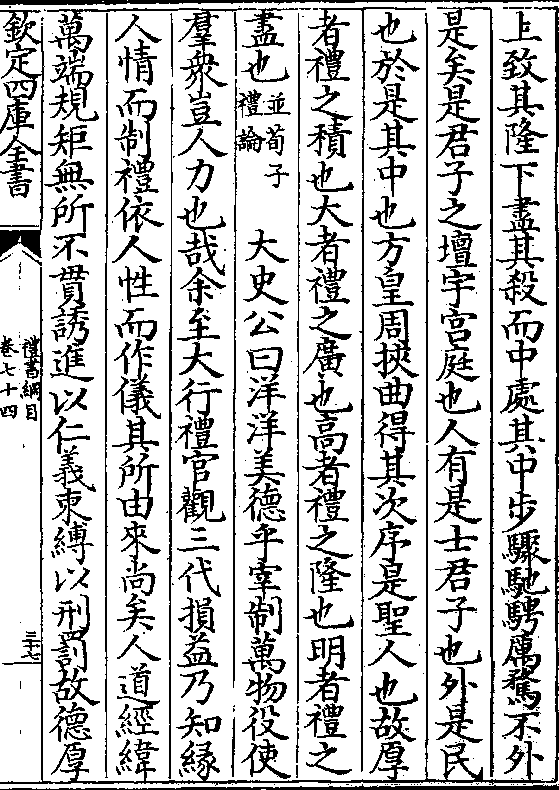 上致其隆下盡其殺而中處其中步驟馳騁厲騖不外
是矣是君子之壇宇宮庭也人有是士君子也外是民
也於是其中也方皇周挾曲得其次序是聖人也故厚
者禮之積也大者禮之廣也高者禮之隆也明者禮之
盡也並荀子禮論 大史公曰洋洋美德乎宰制萬物役使
羣衆豈人力也哉余至大行禮官觀三代損益乃知緣
人情而制禮依人性而作儀其所由來尚矣人道經緯
萬端規矩無所不貫誘進以仁義束縛以刑罰故德厚
欽定四庫全書
禮書綱目
卷七十四
三十七